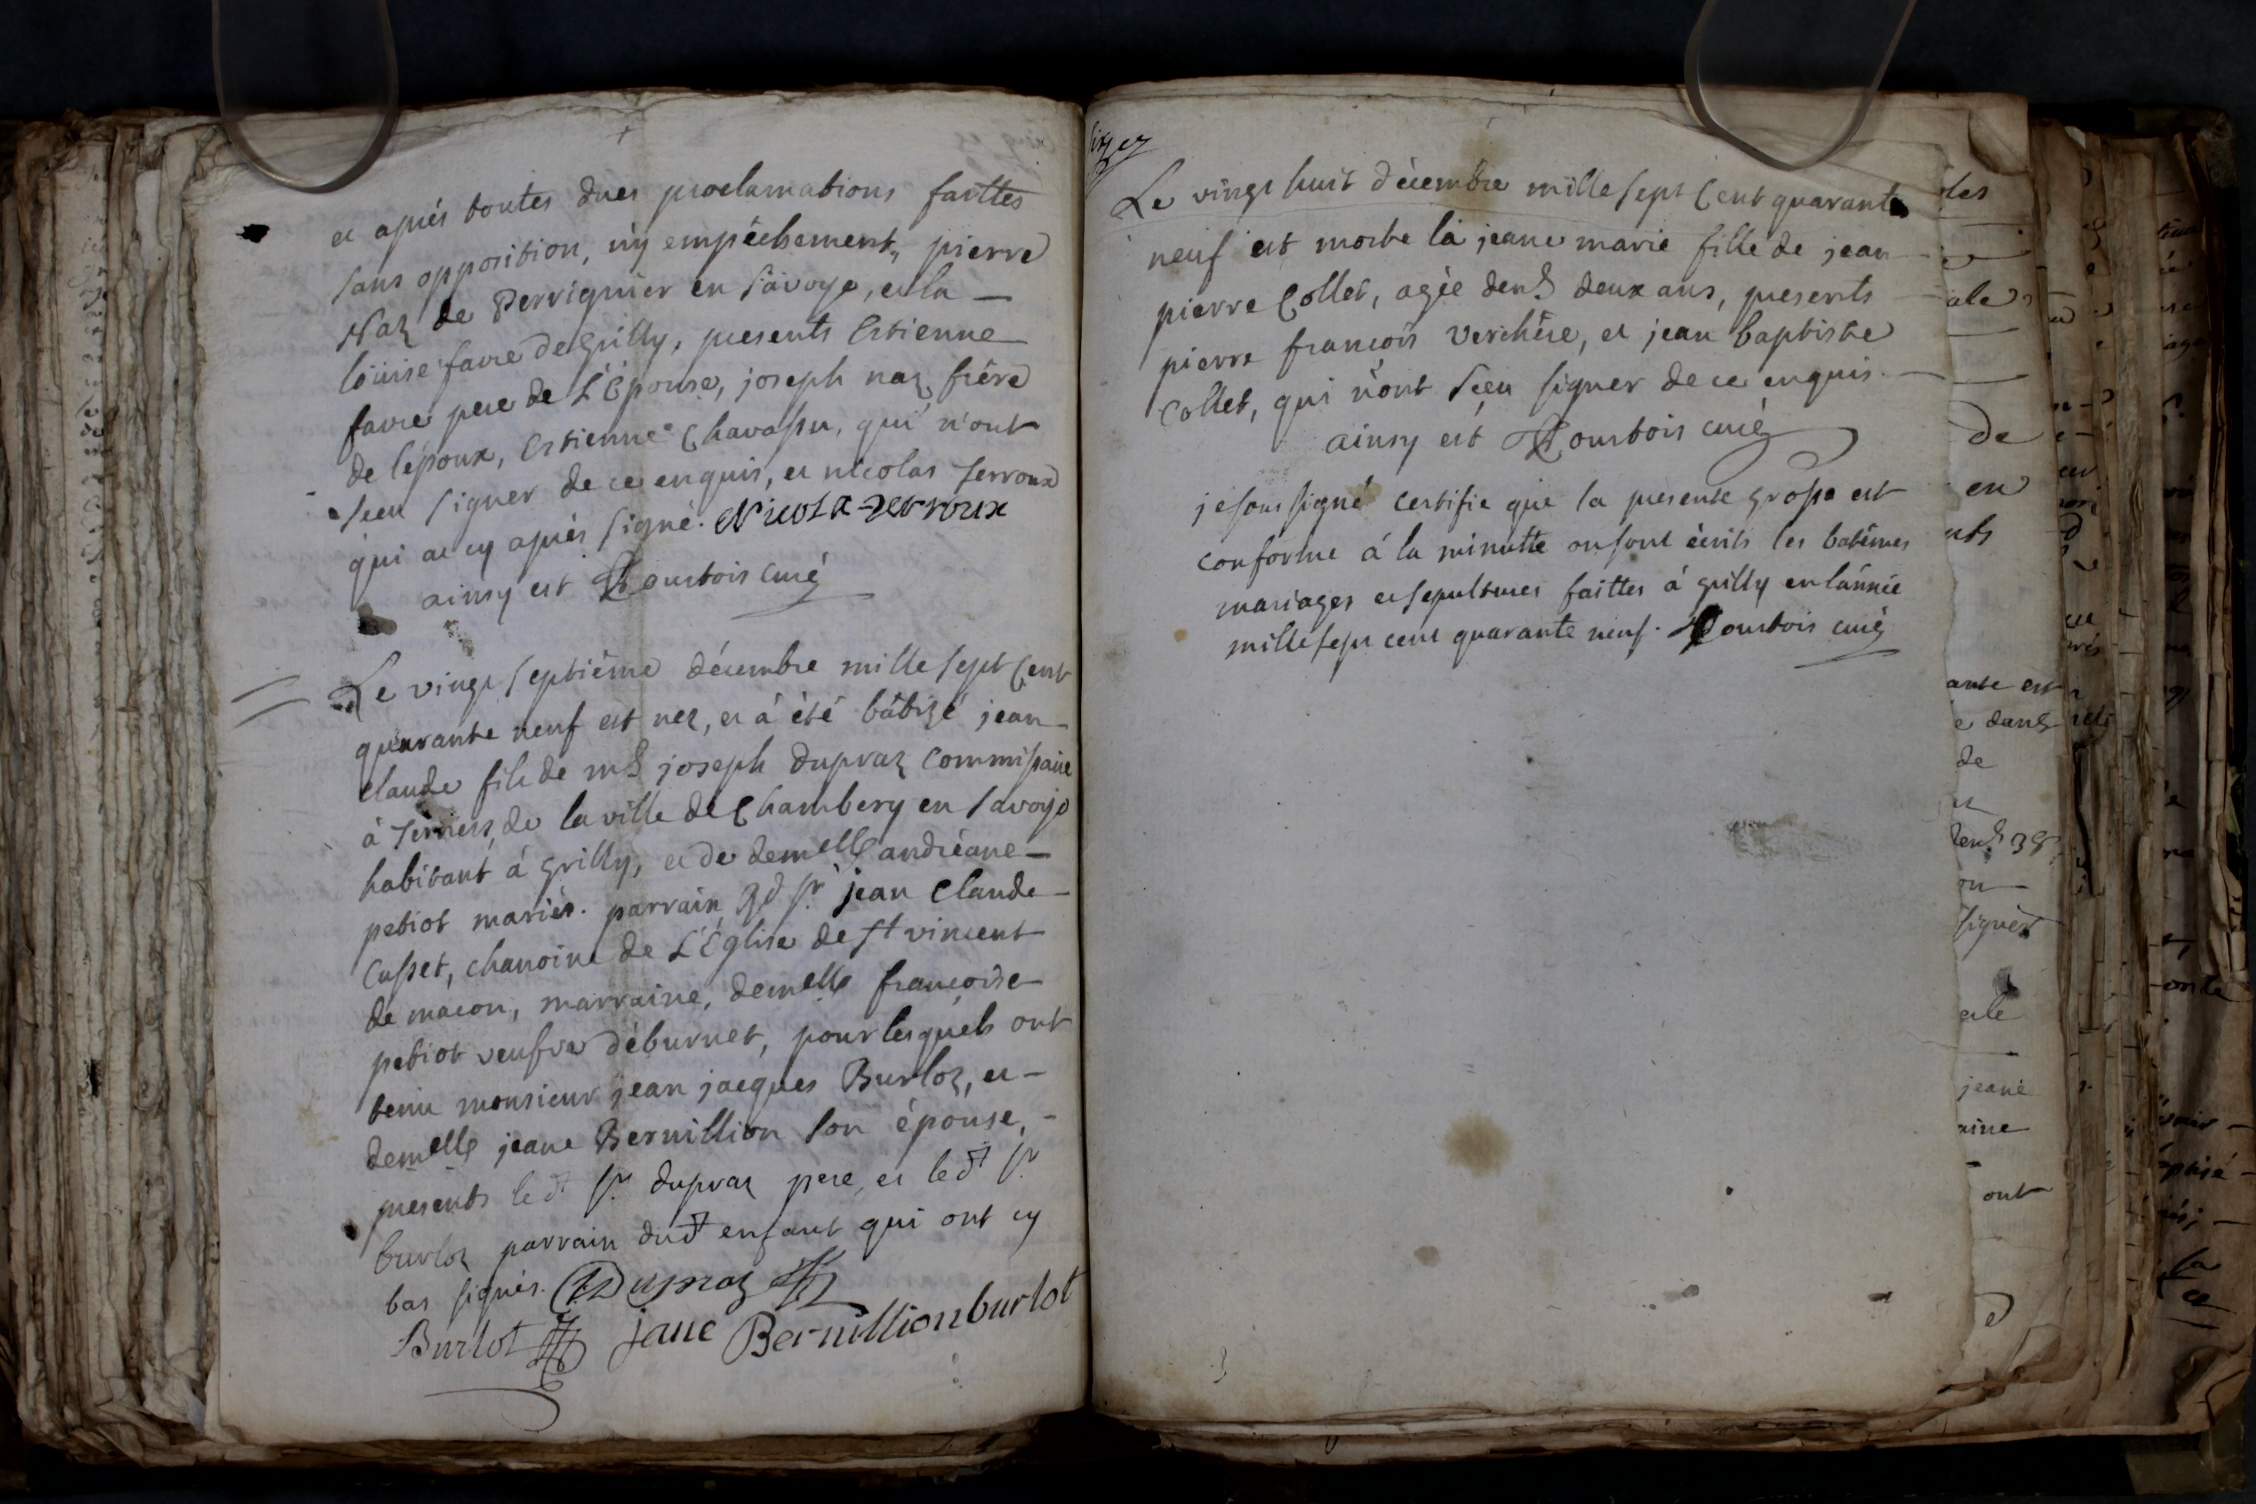 et aprés toutes dues proclamations faittes
sans opposition, n'y empéchement, pierre
Naz de Perrignier en Savoye, et la —
loüise favre de Grilly, presents Estienne
favre pere de L'Epouse, joseph naz frére
de l'époux, Estienne Chavassu, qui n'ont
sceu signer de ce enquis, et nicolas Terroux
qui a cy aprés signé. Nicola Terroux
ainsy est Courtois curé
Le vingt septiéme décembre mille sept Cent
quarante neuf est nez, et à été bâtizé jean
claude fils de mr joseph dupraz Commissaire
à Terriers, de la ville de Chambery en Savoye
habitant á Grilly, et de demelle andréane —
petiot mariés. parrain Rd sr jean Claude —
Cusset, chanoine de L'Église de st vincent
de macon, marraine, demelle françoise
petiot veufve déburnet, pour lesquels ont
tenu monsieur jean jacques Burloz, et —
demelle jeane Bernillion son épouse, -
présents le dt sr dupraz pere, et le dt sr
burloz parrain dudt enfant qui ont cy
bas signés. Dupraz
Burlot jane Bernillion burlot
Le vingt huit décembre mille sept Cent quarante
neuf est morte la jeane marie fille de jean
pierre Collet, agée denv deux ans, presents
pierre françois Verchére, et jean baptiste
Collet, qui n'ont sceu signer de ce enquis.
ainsy est Courtois curé
je soussigné certifie que la presente grosse est
conforme á la minutte ou sont écrits les batêmes
mariages et sepultures faittes á grilly en l'année
mille sept cent quarante neuf. Courtois curé
de
en
ante est
e dans
de
on
signés
jeane
aine
ont